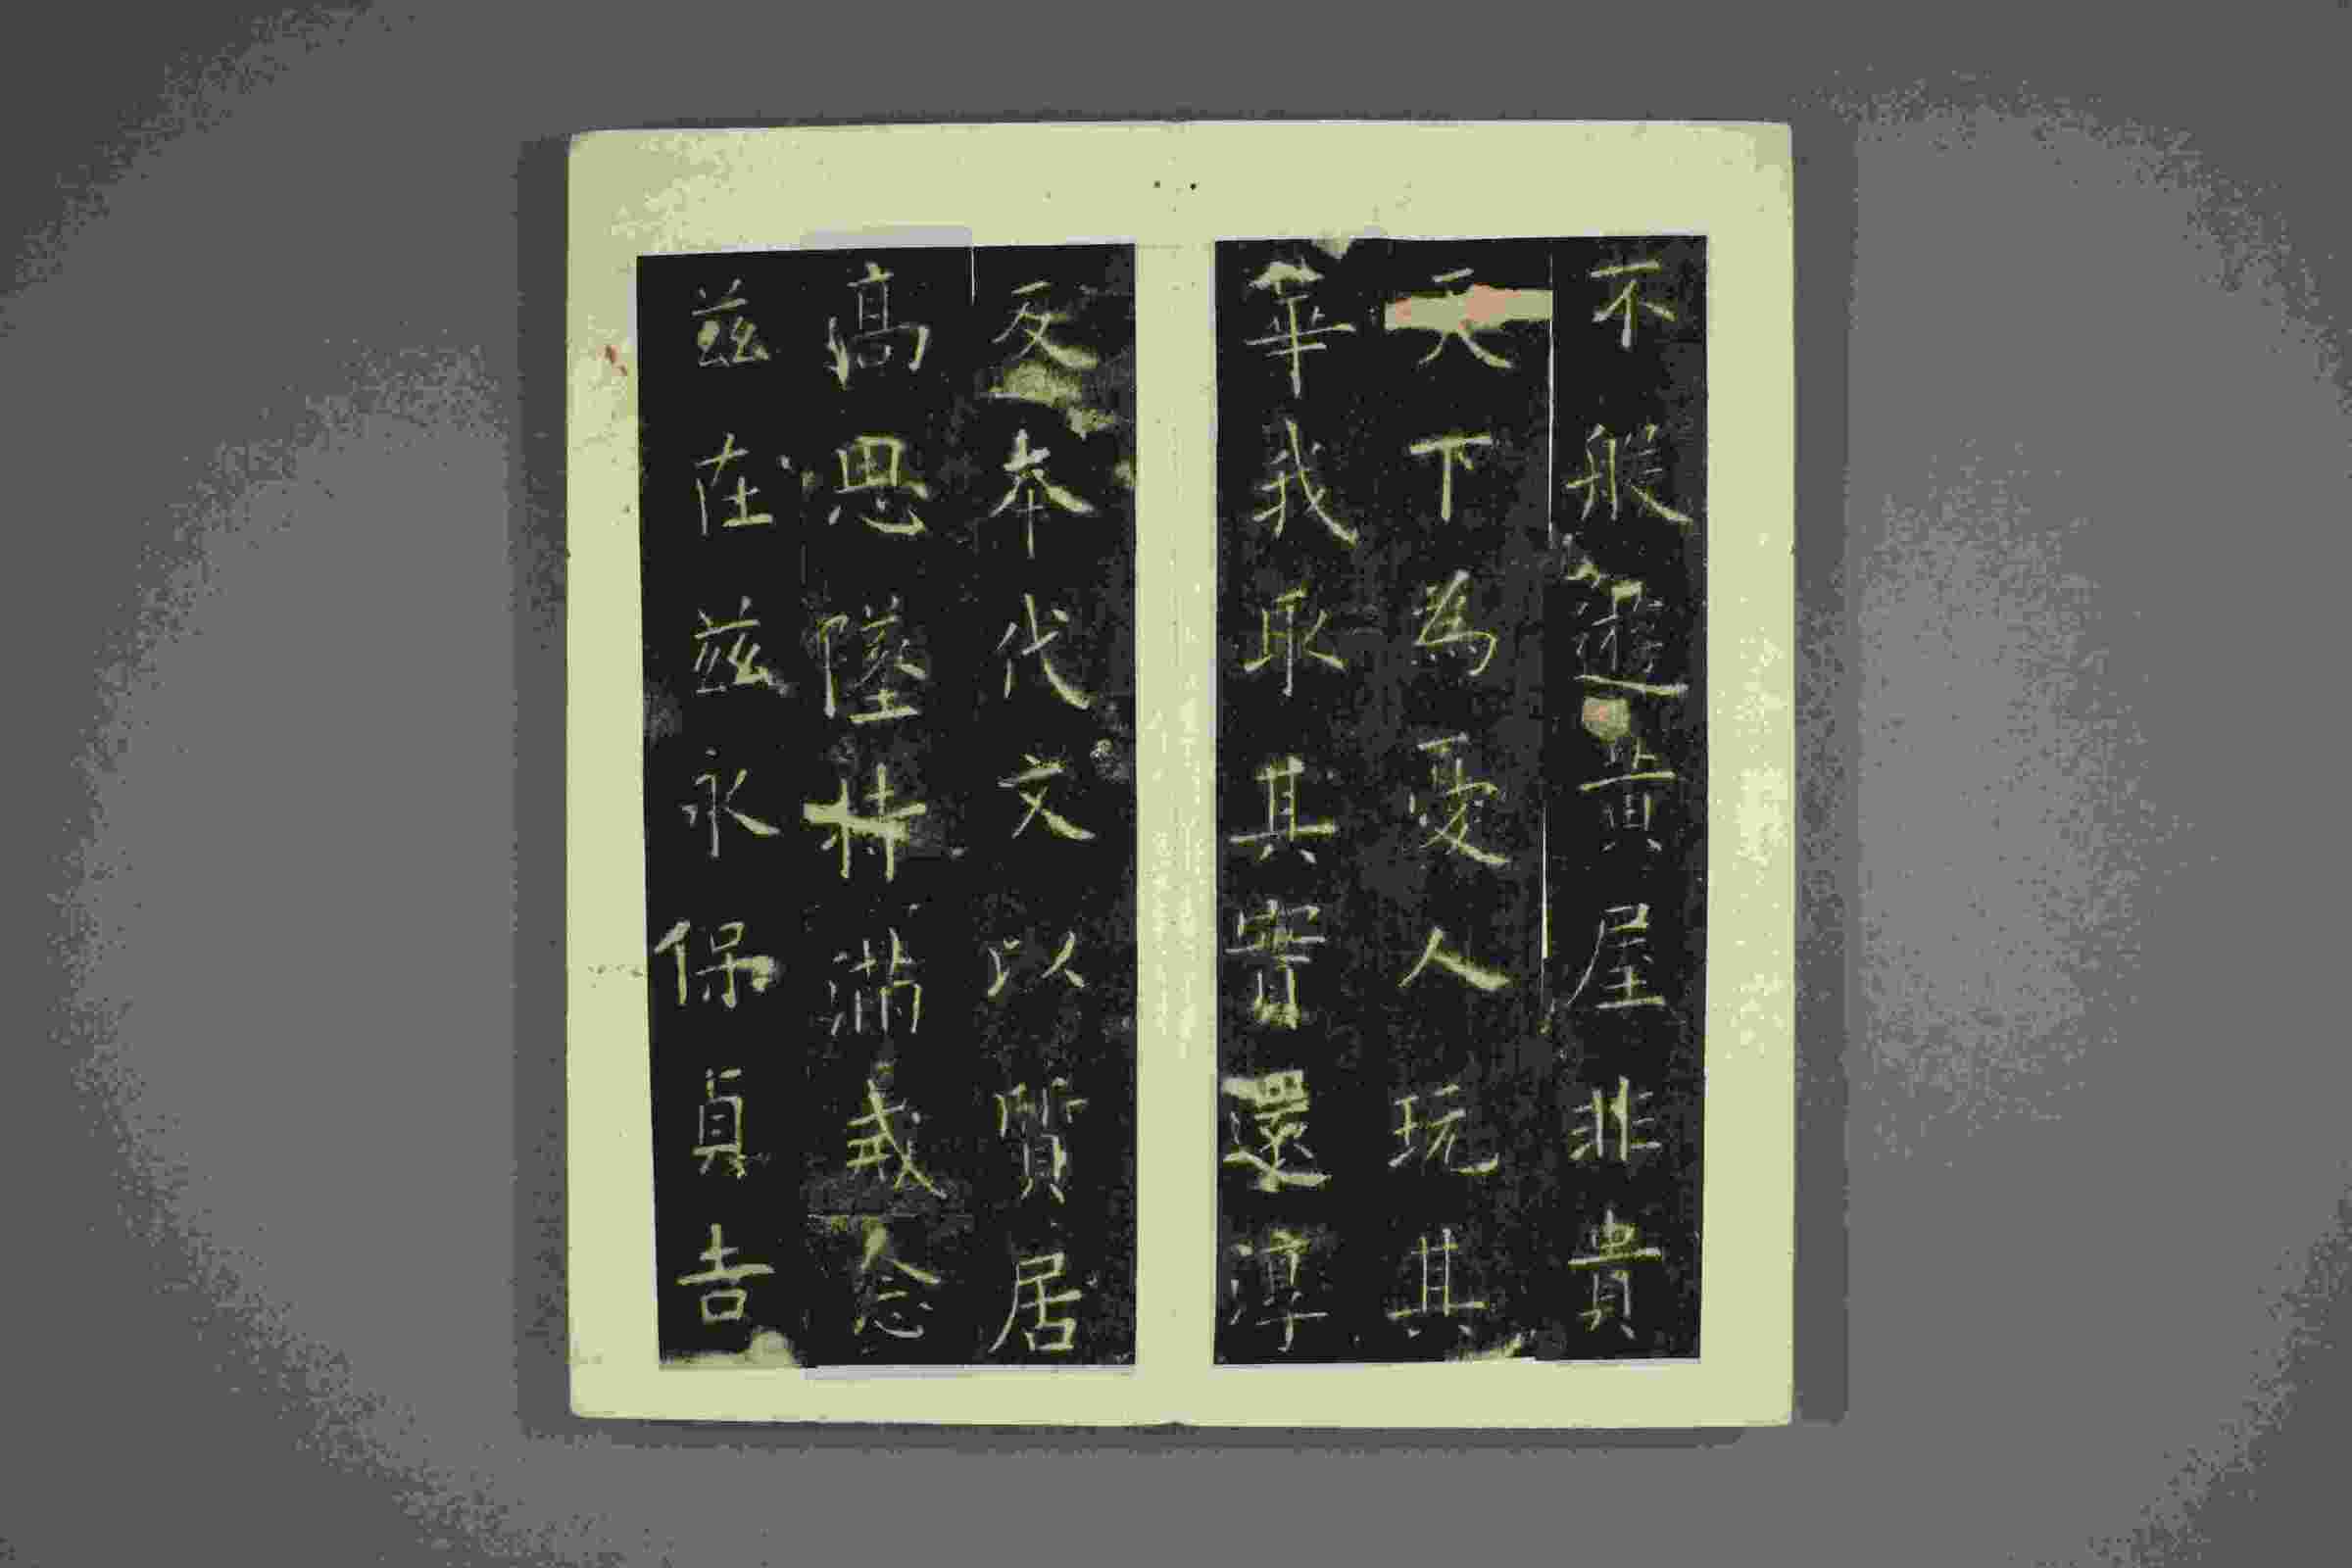 不般遊黃屋非貴
天下為憂人玩其
華我取其實還淳
反本代文以質居
高思墜持滿戒念
茲在茲永保貞吉